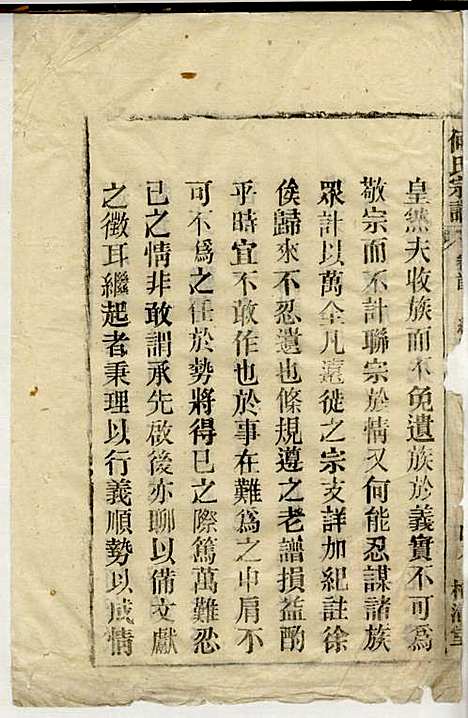 何氏宗譜
皇然夫收族而不免遺族於義實不可為
敬宗而不計聯宗於情又何能忍謀諸族
眾計以萬全凡遷徙之宗支詳加紀註徐
俟歸來不忍遺也條規遵之老譜損益酌
乎時宜不敢作也於事在難為之中肩不
可不為之任於勢將得已之際篤萬難忍
已之情非敢謂承先啟後亦聊以備文獻
之徵耳繼起者秉理以行義順勢以咸情